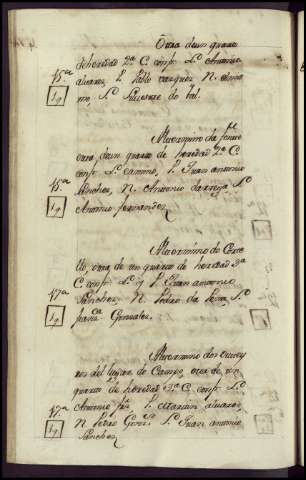 Otra de un quarto
de heredad 2ª C. conf. Lº Antonio
alvarez P. Pablo vazquez N. el mis
mo, Sº Silvestre do bal.
15ª
19
Al termino da
otra, de un quarto de heredad 2ª C.
conf. Lº camino, P. Juan antonio
Sanchez, N. Antonio da veiga Sº
Antonio fernandez
15ª
19
Al termino de
otra de un quarto de heredad 3ª
C. conf. Lº y P. Juan antonio
Sanchez, N. Pedro da Sº
Gonzalez.
17ª
19
Al termino dos
ros del lugar de Campo, otra de un
quarto de heredad 3ª C. conf. Lº
Antonio P. alvarez,
N. Pedro Sº Juan antonio
Sanchez
17ª
19